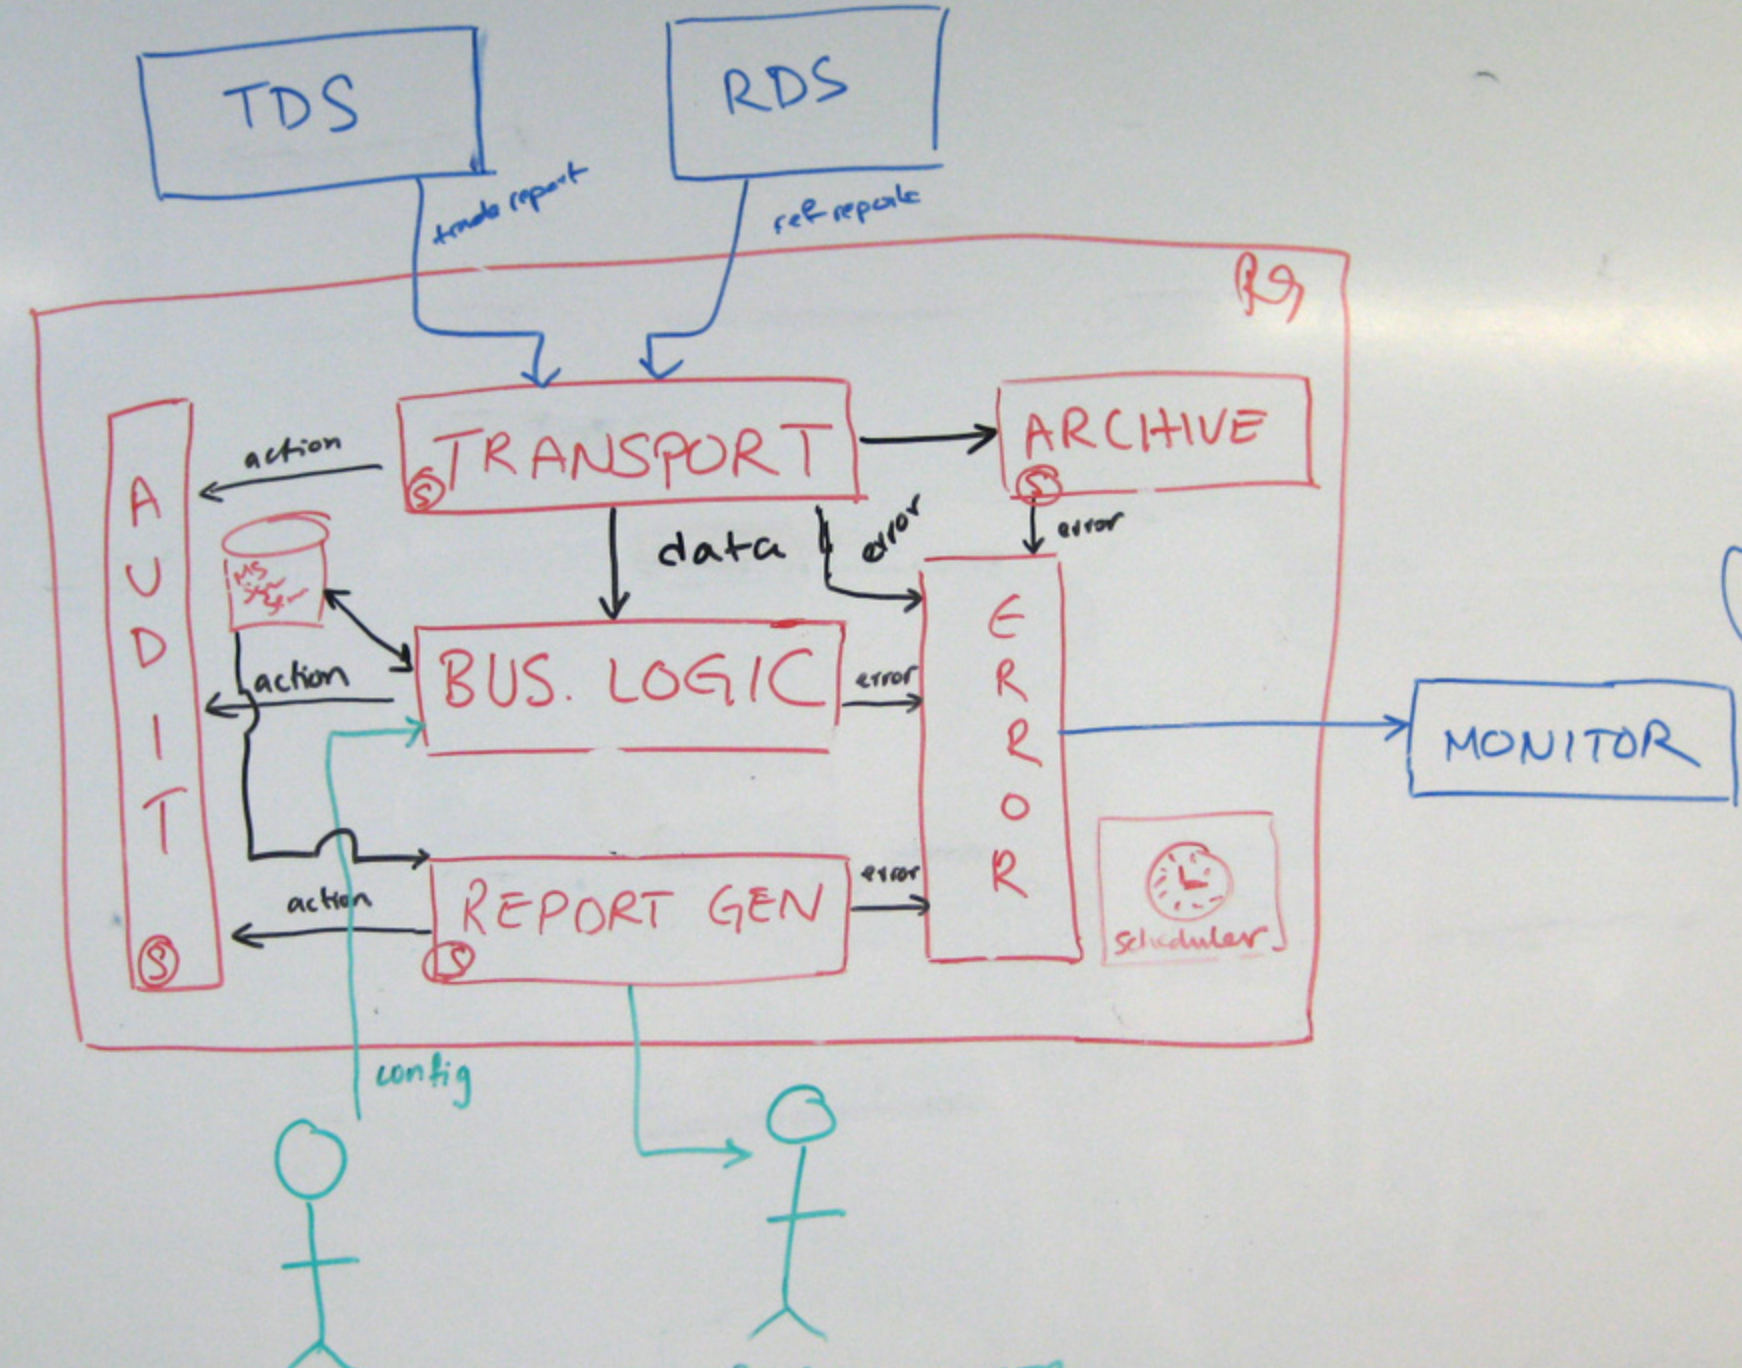 TDS
RDS
trade report
ref report
TRANSPORT
S
ARCHIVE
S
action
AUDIT
S
data
error
error
MS
BUS. LOGIC
action
error
ERROR
MONITOR
REPORT GEN
S
action
error
scheduler
config